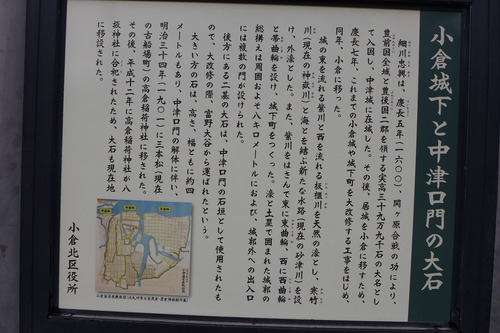 小倉城下と中津口門の大石
細川忠興は、慶長五年(一六〇〇)、関ヶ原合戦の功により、
豊前国全域と豊後国二郡を領する実高三十九万九千石の大名とし
て入国し、中津城に在城した。その後、居城を小倉に移すため、
慶長七年、これまでの小倉城や城下町を大改修する工事をはじめ、
同年、小倉に移った。
城の東を流れる紫川と西を流れる板櫃川を天然の濠とし、寒竹
川(現在の神嶽川)と海とを結ぶ新たな水路(現在の砂津川)を設
け、外濠とした。また、紫川をはさんで東に東曲輪、西に西曲輪
と帯曲輪を設け、城下町をつくった。濠と土塁で囲まれた城郭の
総構えは周囲およそ八キロメートルにおよび、城郭外への出入口
には複数の門が設けられた。
後方にある二基の大石は、中津口門の石垣として使用されたも
ので、大改修の際、富野大谷から運ばれたという。
大きい方の石は、高さ、幅ともに約四
メートルもあり、中津口門の解体に伴い、
明治三十四年(一九〇一)に三本松(現在
の古船場町)の高倉稲荷神社に移された。
その後、平成十二年に高倉稲荷神社が八
坂神社に合祀されたため、大石も現在地
に移設された。
小倉北区役所